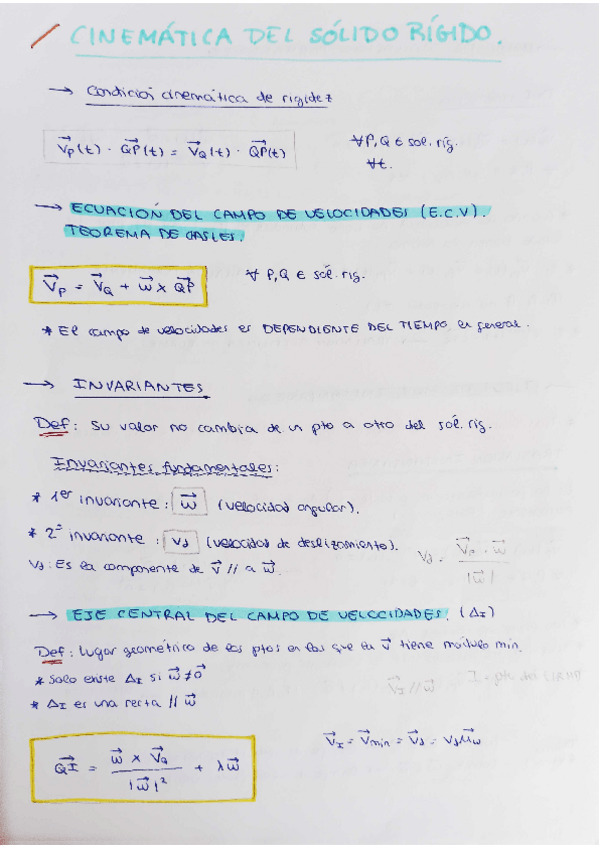 CINEMÁTICA DEL SÓLIDO RÍGIDO.
→ Condición cinemática de rigidez
V⃗p(t) · QP⃗(t) = V⃗Q(t) · QP⃗(t) ∀P,Q ∈ sol. ríg.
∀t.
→ ECUACIÓN DEL CAMPO DE VELOCIDADES (E.C.V).
TEOREMA DE CASLES.
V⃗P = V⃗Q + ω⃗ x QP⃗ ∀ P,Q ∈ sól. rig.
* El campo de velocidades es DEPENDIENTE DEL TIEMPO, en general.
→ INVARIANTES.
Def: Su valor no cambia de un pto a otro del sól. rig.
Invariantes fundamentales:
* 1er invariante: ω⃗ (velocidad angular).
* 2º invariante: Vd (velocidad de deslizamiento). Vd = V⃗p · ω⃗ / |ω⃗|
Vd: Es la componente de V⃗ // a ω⃗.
→ EJE CENTRAL DEL CAMPO DE VELOCIDADES. (ΔI)
Def: Lugar geométrico de los ptos en los que la V⃗ tiene módulo mín.
* Solo existe ΔI si ω⃗ ≠ 0⃗ V⃗I // ω⃗ I - pto del
* ΔI es una recta // ω⃗
V⃗I = V⃗min = V⃗d = Vd μ⃗ω
QI⃗ = ω⃗ x V⃗Q / |ω⃗|² + λω⃗